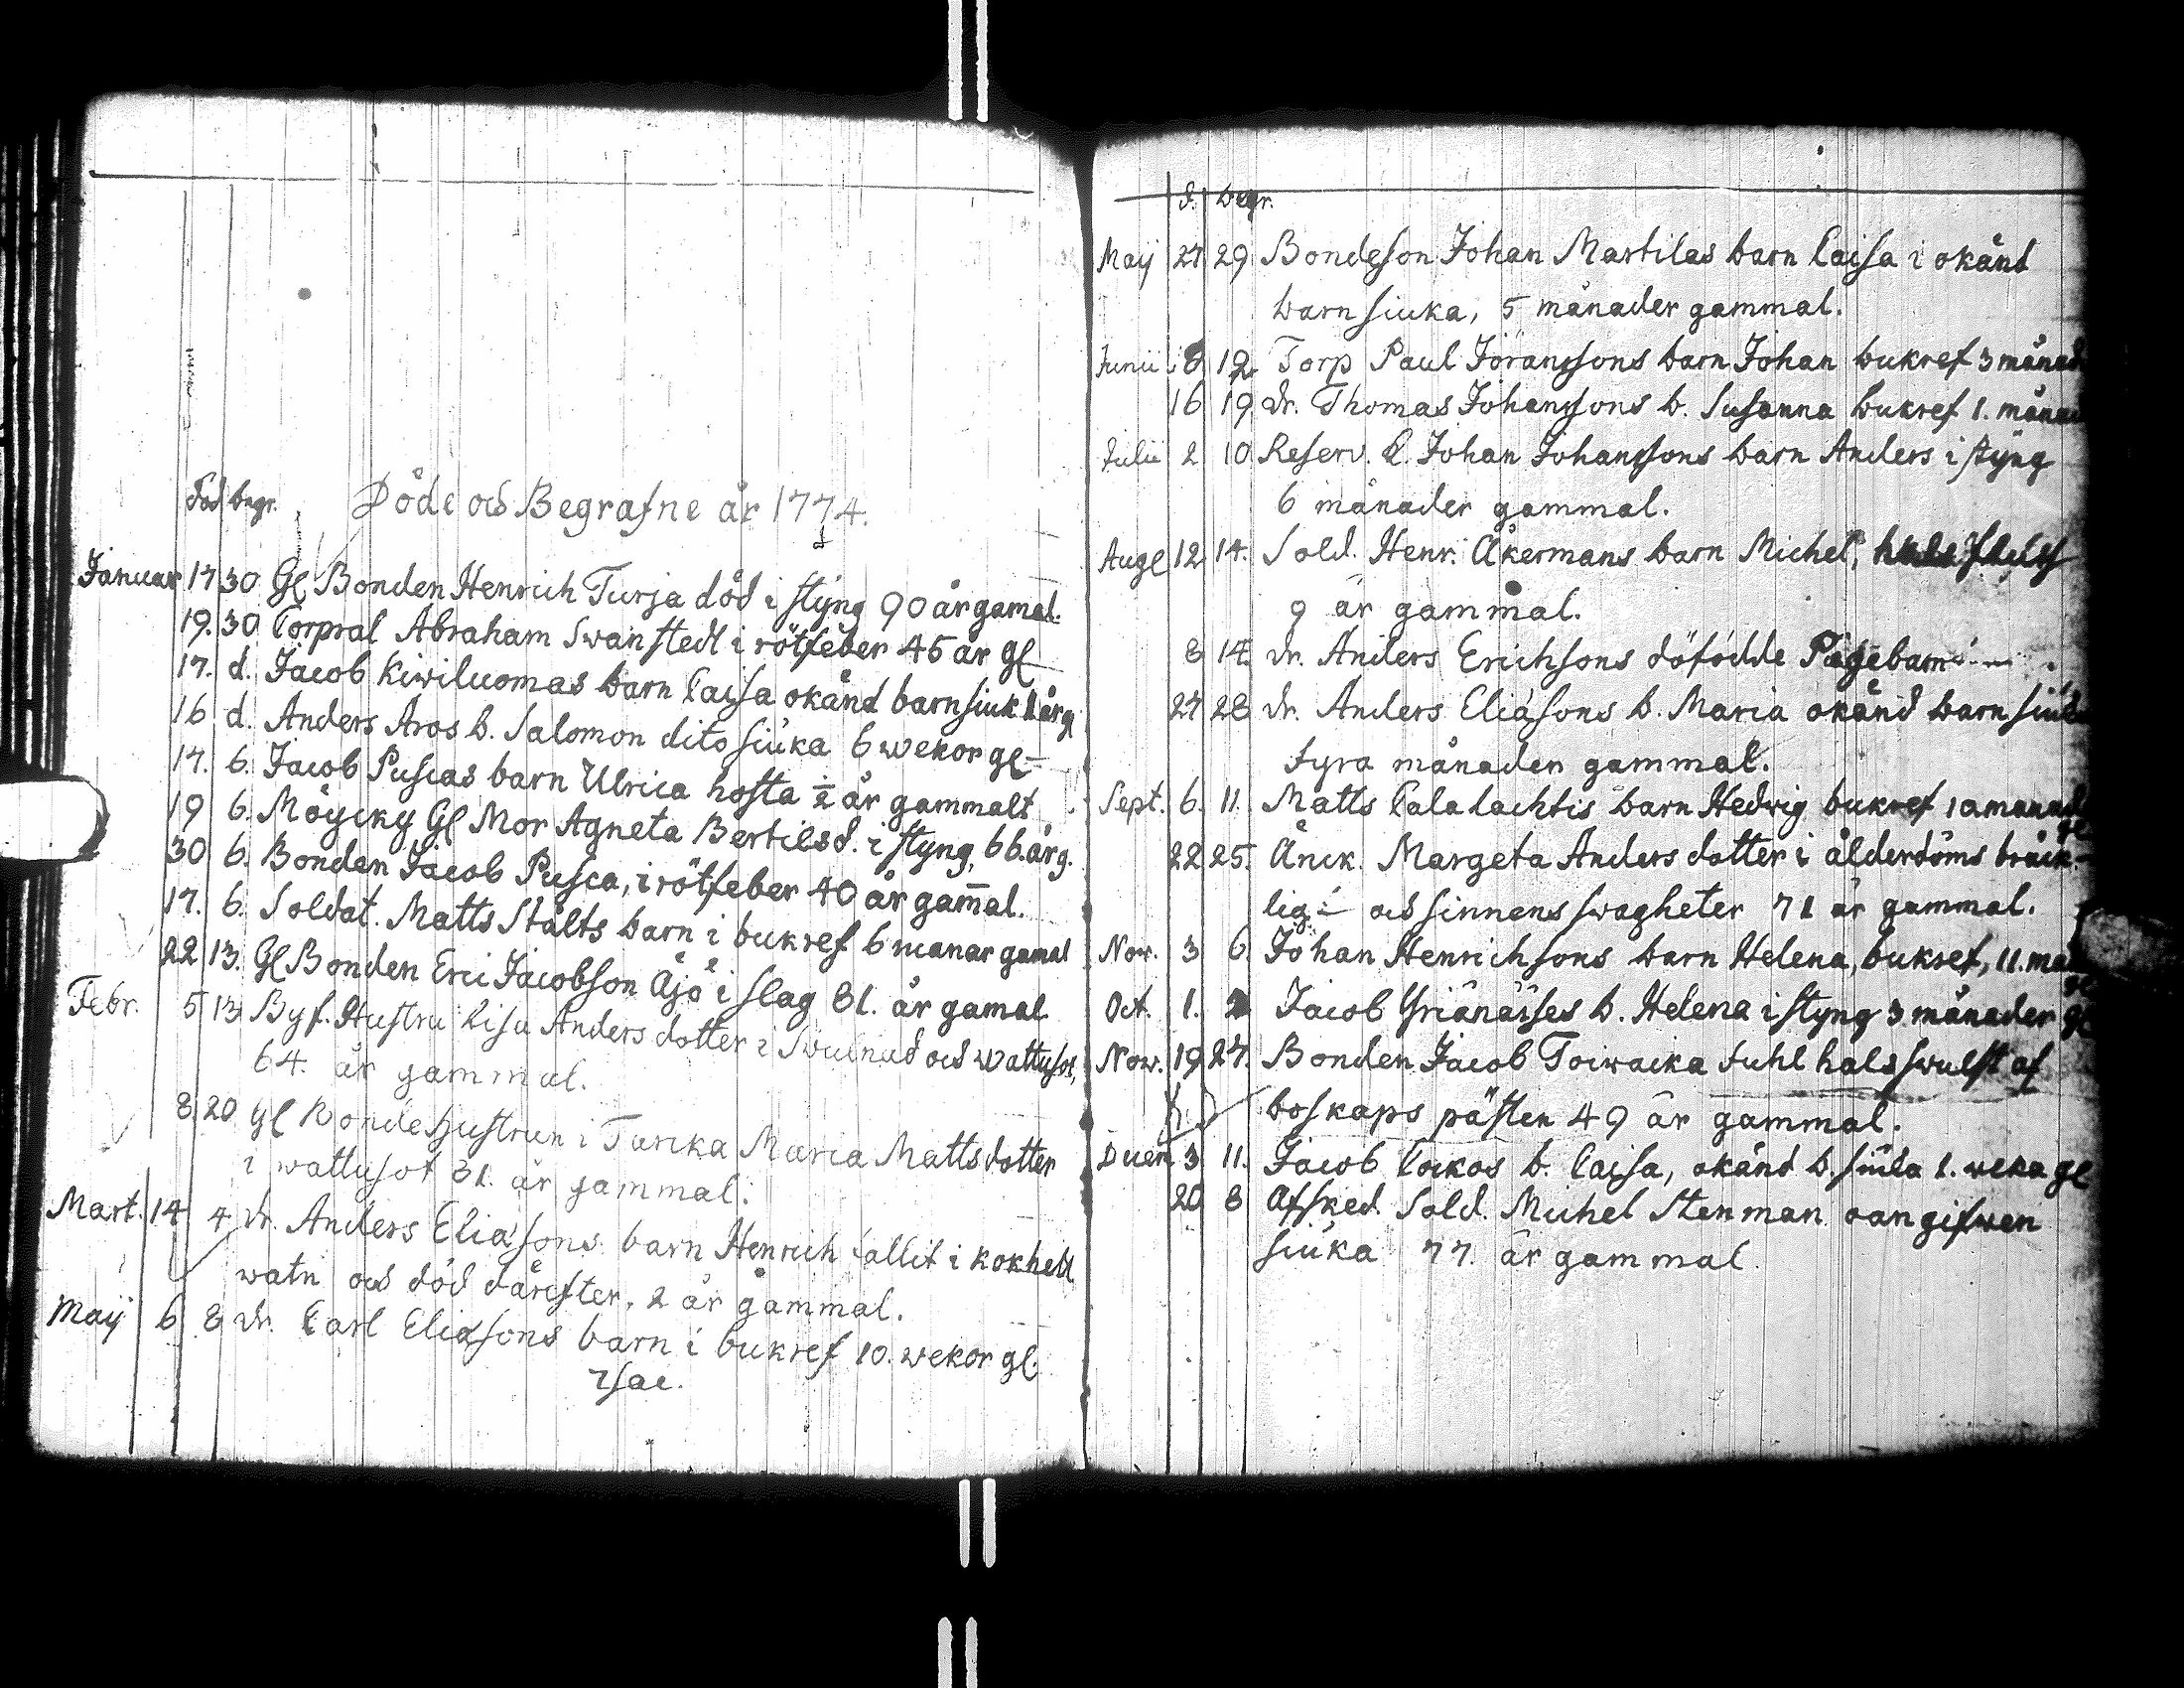 död begr. Döde och Begrafne år 1774.
Januar 17 30 Gl Bonden Henrich Turja död i styng 90 år gamal.
19. 30 Corpral Abraham Swanstedt i rötfeber 45 år gl
17. d. Jacob Kiwiluomas barn Caisa okänd barnsiuk 1 år g
16 d. Anders Aros b. Salomon dito siuka 6 wekor gl
17. 6. Jacob Puscas barn Ulrica hosta ½ år gammalt
19 6. Möycky Gl Mor Agneta Bertilsd. i styng, 66. år g.
30 6. Bonden Jacob Pusca, i rötfeber 40 år gam̅al.
17. 6. Soldat. Matts Stålts barn i bukref 6 manar gamal
22 13. Gl Bonden Eric Jacobson Äjö i slag 81. år gamal
Febr. 5 13 Byf. Hustru Lisa Anders dotter i Swulnad och wattusot,
64. år gammal.
8 20 Gl Bonde Hustrun i Turcka Maria Matts dotter
i wattusot 81. år gammal.
Mart. 14 4 dr. Anders Eliasons barn Henrich fallit i kokhett
watn och död därefter, 2 år gammal.
Maij 6 8 dr. Carl Eliasons barn i bukref 10. wekor gl.
Isac.
d. begr.
Maij 27 29 Bondeson Johan Martilas barn Caisa i okänd
barnsiuka, 5 månader gammal.
Junii 8 12 Torp Paul Jöranssons barn Johan bukref 3 månad
16 19 dr. Thomas Johanssons b. Susanna bukref 1. månad
Julii 2 10 Reserv. C. Johan Johanssons barn Anders i styng
6 månader gammal.
Augl 12 14. Sold. Henr. Åkermans barn Michel,
9 år gammal.
8 14. dr. Anders Erichsons döfödde Pågebarn
27 28 dr. Anders Eliasons b. Maria okänd barn siuka
fyra månader gammal.
Sept. 6. 11. Matts Caladachtis barn Hedwig bukref 10 manad
gl
22 25. Änck. Margeta Anders dotter i ålderdoms bräck-
lig- och sinnens swagheter 71 år gammal.
Nov. 3 6. Johan Henrichsons barn Helena, bukref, 11. må
Oct. 1. 2 Jacob Yrjänäises b. Helena i styng 3 månader gl
Now. 19 27. Bonden Jacob Toiwacka fuhl halsswulst af
boskaps pästen 49 år gammal.
Decem 3 11. Jacob Cockos b. Caisa, okänd b. siuka 1. weka gl
20 8 Afsked. Sold. Michel Stenman oangifwen
siuka 77 år gammal.